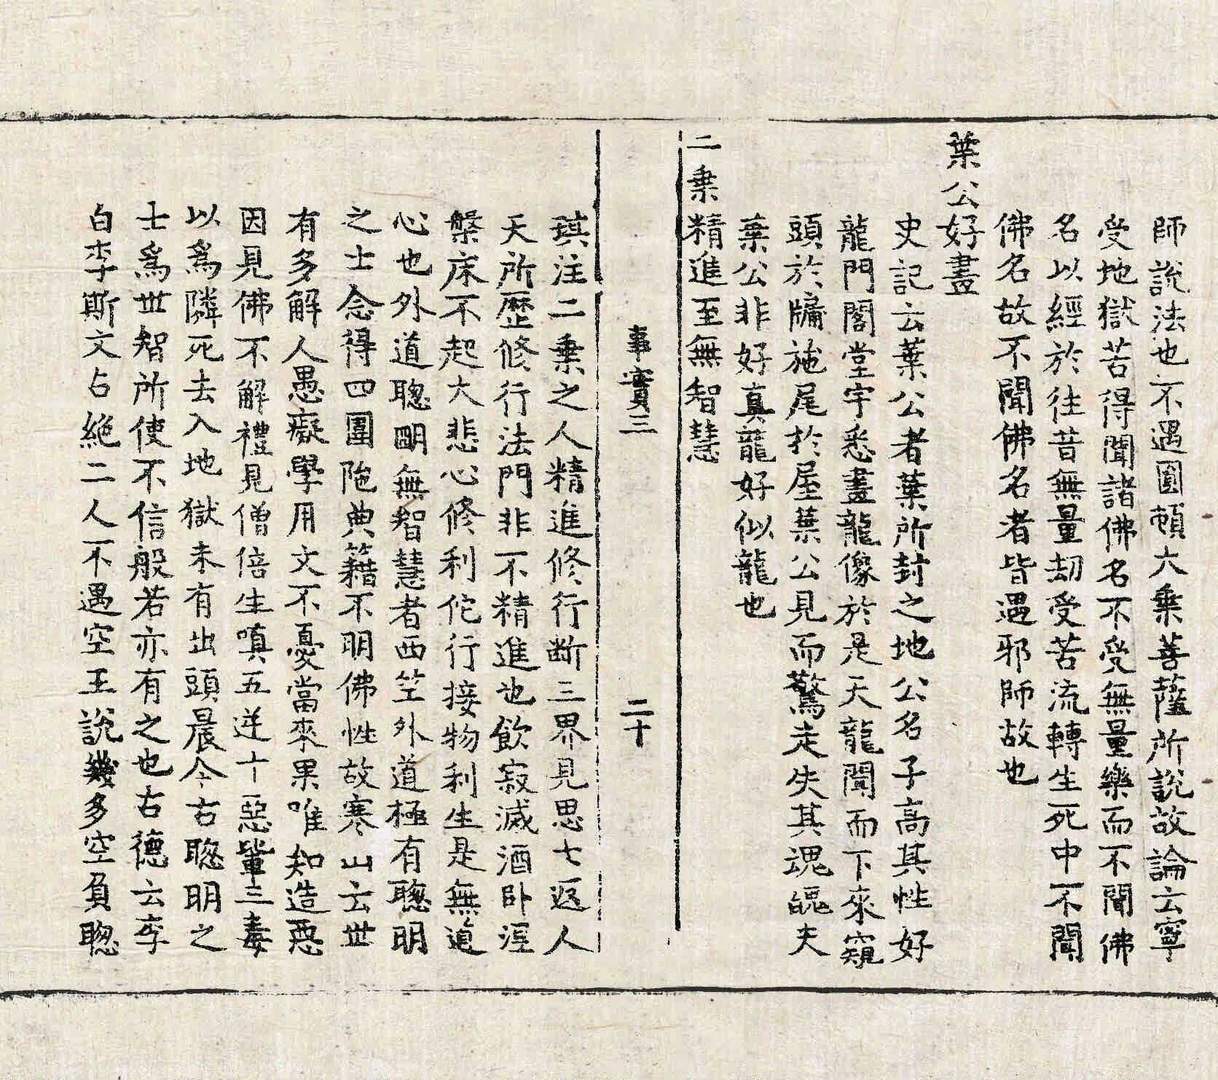 師說法也不遇圓頓大乘菩薩所說故論云寧
受地獄苦得聞諸佛名不受無量樂而不聞佛
名以經於徃昔無量劫受苦流轉生死中不聞
佛名故不聞佛名者皆遇邪師故也
葉公好畫
史記云葉公者葉所封之地公名子高其性好
龍門閣堂宇悉畫龍像於是天龍聞而下來窺
頭於牖施尾於屋葉公見而驚走失其魂魄夫
葉公非好真龍好似龍也
二乗精進至無智慧
事實三
二十
琪注二乗之人精進修行断三界見思七返人
天所歷修行法門非不精進也飲寂滅酒卧涅
槃床不起大悲心修利佗行接物利生是無道
心也外道聦明無智慧者西竺外道極有聦明
之士念得四圍陁典籍不明佛性故寒山云世
有多解人愚癡學用文不憂當來果唯知造惡
因見佛不解禮見僧倍生嗔五逆十惡軰三毒
以為隣死去入地獄未有出頭晨今古聦明之
士為世智所使不信般若亦有之也古德云李
白李斯文占絶二人不遇空王說幾多空負聦